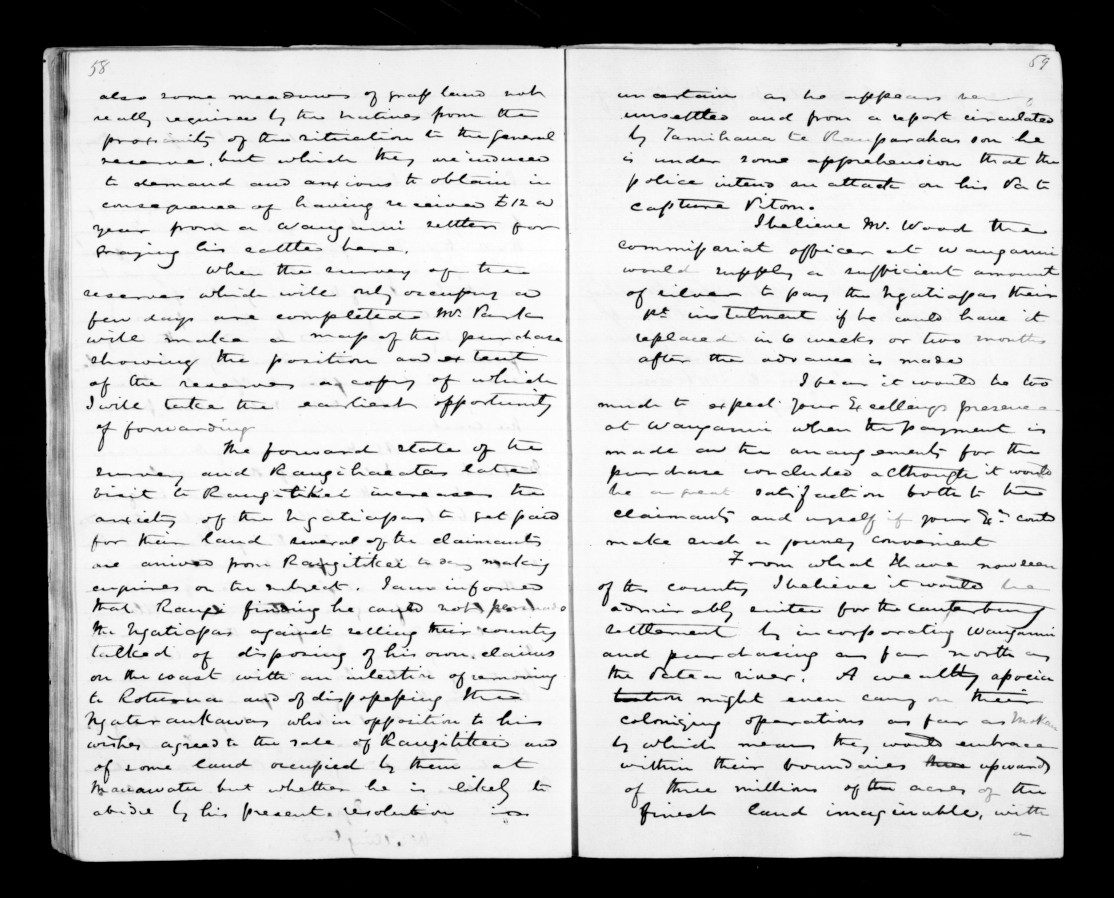 58
also some meadows of grass land not
really required by the natives from the
proximity of the situation to the general
reserve, but which they are induced
to demand and anxious to obtain in
consequence of having received £12 a
year from a Wanganui settler for
grazing his cattle here.
When the survey of the
reserves which will only occupy a
few days are completed Mr. Park
will make a map of the purchase
showing the position and extent
of the reserves a copy of which
I will take the earliest opportunity
of forwarding
The forward state of the
survey and Rangihaeatas late
visit to Rangitikei increases the
anxiety of the Ngatiapas to get paid
for their land several of the claimants
are arrived from Rangitikei to day making
enquiries on the subject. I am informed
that Rangi finding he could not persuade
the Ngatiapas against selling their country
talked of disposing of his own claims
on the coast with an intention of removing
to Roturua and of dispossessing the
Ngateraukawas who in opposition to his
wishes agreed to the sale of Rangitikei and
of some land occupied by them at
Manawatu but whether he is likely to
abide by his present resolution is
59
uncertain as he appears very
unsettled and from a report circulated
by Tamihana te Rauparahas son he
is under some apprehension that the
police intend an attack on his Pa to
capture Pitoni.
I believe Mr. Wood the
commissariat officer at Wanganui
would supply a sufficient amount
of silver to pay the Ngatiapas their
1st. instalment if he could have it
replaced in 6 weeks or two months
after the advance is made
I fear it would be too
much to expect Your Excellency's presence
at Wanganui when the payment is
made and the arrangements for the
purchase concluded although it would
be a great satisfaction both to the
claimants and myself if your Ex.y could
make such a journey convenient
From what I have now seen
of the country I believe it would be
admirably suited for the Canterbury
settlement by incorporating Wanganui
and purchasing as far north as
the Patea river. A wealthy associa
tion might even carry on their
colonizing operations as far as Mokau
by which means they would embrace
within their boundaries three upwards
of three millions of the acres of the
finest land imaginable, with
a